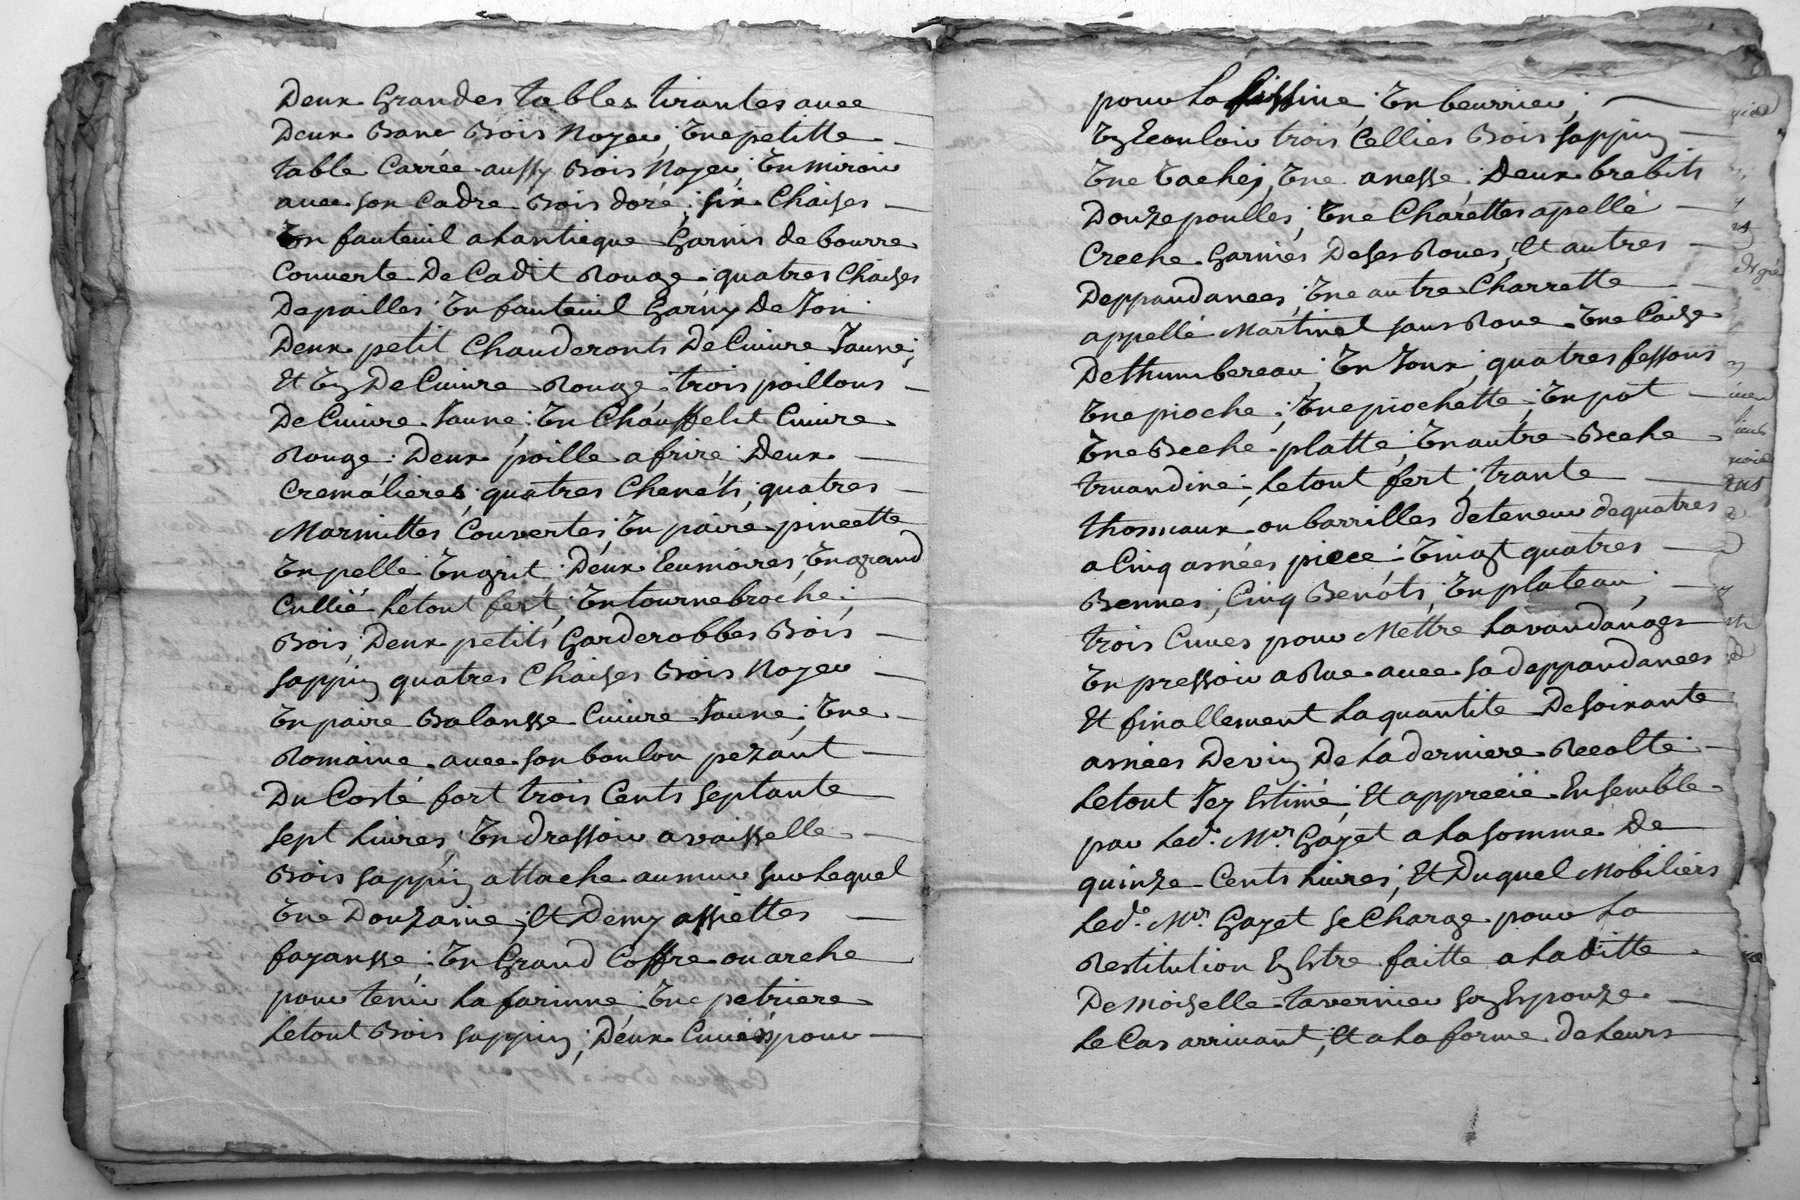 Deux Grandes tables tirantes avec
Deux Banc Bois Noyer, Une petitte
table Carrée aussy Bois Noyer, Un miroir
avec son Cadre Bois doré, six Chaises
Un fauteuil alantieque Garnis de bourre
Couverte De Cadit Rouge, quatres Chaises
De pailles Un fauteuil Garny De Jon
Deux petit Chauderonts De Cuivre Jaune;
Et Un De Cuivre Rouge, trois poillons
De Cuivre Jaune; Un Chauffelit Cuivre
Rouge. Deux poille a frire Deux
Cremálieres, quatres Chenéts, quatres
Marmittes Couvertes, Un paire pincette
Un pelle, Un grit, Deux Ecumoires, Un grand
Cullié le tout fert, Un tournebroche;
Bois, Deux petits Garderobbes Bois
sappin quatres Chaises Bois Noyer
Un paire Balansse Cuivre Jaune; Une
Romaine avec son boulon pezánt
Du Costé fort trois Cents septante
sept Livres, Un dressoir a vaisselle
Bois sappin attache au mur sur Lequel
Une Douzaine, Et Demy assiettes
fayansse; Un Grand Coffre ou arche
pour tenir La farinne, Une petriere
Le tout Bois sappin; Deux Cuviers pour
pour La Un beurrier;
Un Ecouloir trois Cellies Bois sappin
Une Vache, Une anesse, Deux brebits
Douze poulles; Une Charettes apellé
Creche Garnies De ses Roues, Et autres
Deppandances, Une autre Charrette
appellé Martinet sans Roue Une Caise
De thumbereau, Un Joux, quatres fessous
Une pioche; Une piochette, Un pot
Une Beche platte, Un autre Beche
truandine, Le tout fert, trante
thonneaux ou barrilles de teneur de quatres
a Cinq asnées piece: Vingt quatres
Bennes, Cinq Benóts, Un plateau;
trois Cuves pour Mettre La vandanges
Un pressoir a Rue avec sa deppandances
Et finallement La quantité De soixante
asnées De vin De La derniere Recolte
Le tout Icy Estimé, Et apprecié Ensemble
par Led.t M.r Gayet a La somme De
quinze Cents Livres, Et Duquel Mobiliers
Led.t M.r Gayet se Charge pour La
Restitution En Etre faitte a La ditte
Demoiselle tavernier son Espouze
Le Cas arrivant, Et a La forme de Leurs